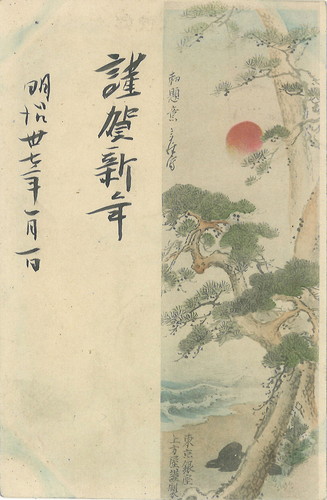 謹賀新年
明治卅七年一月一日
東京銀座
上方屋